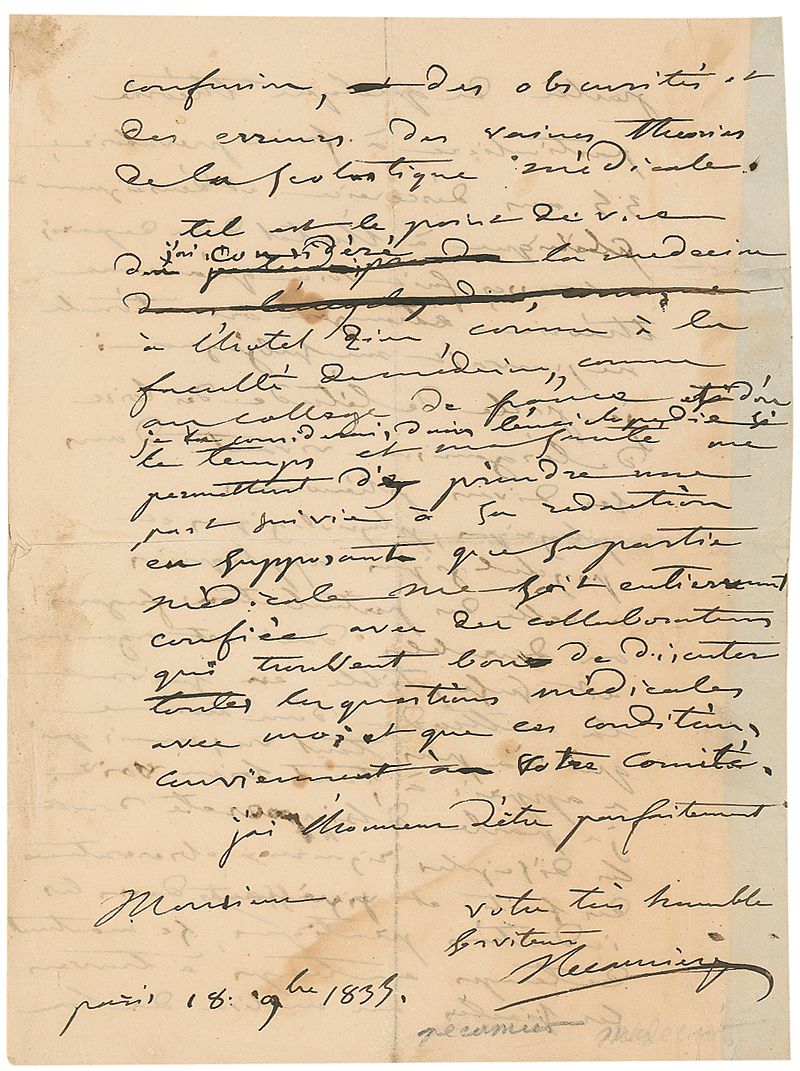 confusion, des obscurités et
des erreurs des vaines théories
de la scolastique médicale.
tel est le point de vue
j'ai considéré
dont la médecine
à l'hotel dieu, comme à la
faculté de médecine, comme
au college de france et don
je la considerai, dans l'encyclopédie si
le temps et ma santé me
permettent d'y prendre une
part suivie à sa redaction
en supposant que sa partie
médicale me soit entierement
confiée avec des collaborateurs
qui trouvent bon de discuter
toutes les questions médicales
avec moi, et que ces conditions
conviennent à votre comité.
j'ai l'honneur d'être parfaitement
Monsieur votre très humble
serviteur
Récamier
paris 18. 9bre 1835.
recamier medecin